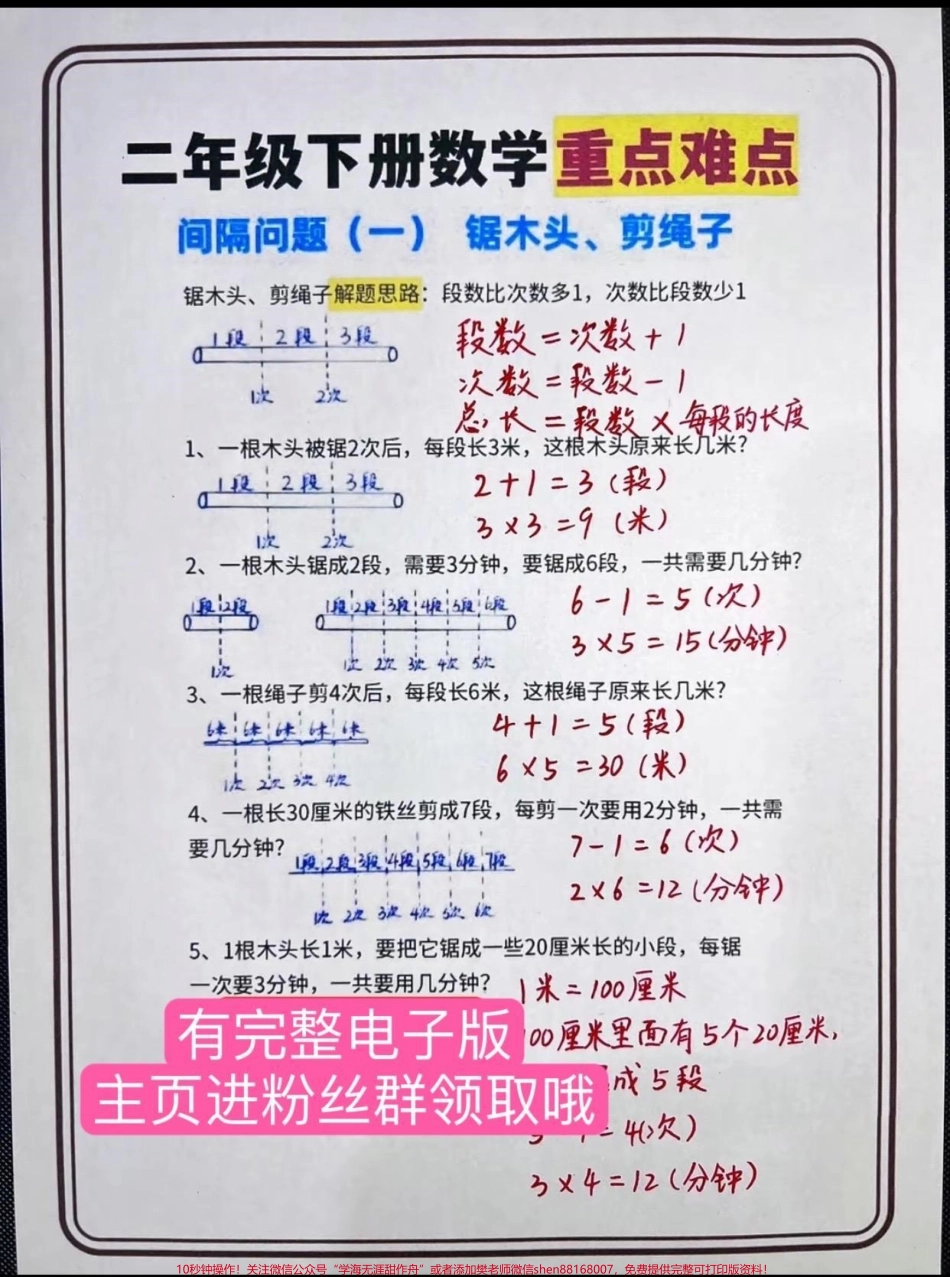 二年级下册数学重点难点
间隔问题（一） 锯木头、剪绳子
锯木头、剪绳子解题思路：段数比次数多1，次数比段数少1
1段 2段 3段
1次 2次
段数=次数+1
次数=段数-1
总长=段数×每段的长度
1、一根木头被锯2次后，每段长3米，这根木头原来长几米？
1段 2段 3段
1次 2次
2+1=3（段）
3×3=9（米）
2、一根木头锯成2段，需要3分钟，要锯成6段，一共需要几分钟？
1段 2段
1次
1段 2段 3段 4段 5段 6段
1次 2次 3次 4次 5次
6-1=5（次）
3×5=15（分钟）
3、一根绳子剪4次后，每段长6米，这根绳子原来长几米？
6米 6米 6米 6米 6米
1次 2次 3次 4次
4+1=5（段）
6×5=30（米）
4、一根长30厘米的铁丝剪成7段，每剪一次要用2分钟，一共需
要几分钟？
1段 2段 3段 4段 5段 6段 7段
1次 2次 3次 4次 5次 6次
7-1=6（次）
2×6=12（分钟）
5、1根木头长1米，要把它锯成一些20厘米长的小段，每锯
一次要3分钟，一共要用几分钟？
1米=100厘米
100厘米里面有5个20厘米，
成5段
=4（次）
3×4=12（分钟）
有完整电子版
主页进粉丝群领取哦
10秒钟操作！关注微信公众号“学海无涯甜作舟”或者添加樊老师微信shen88168007，免费提供完整可打印版资料！